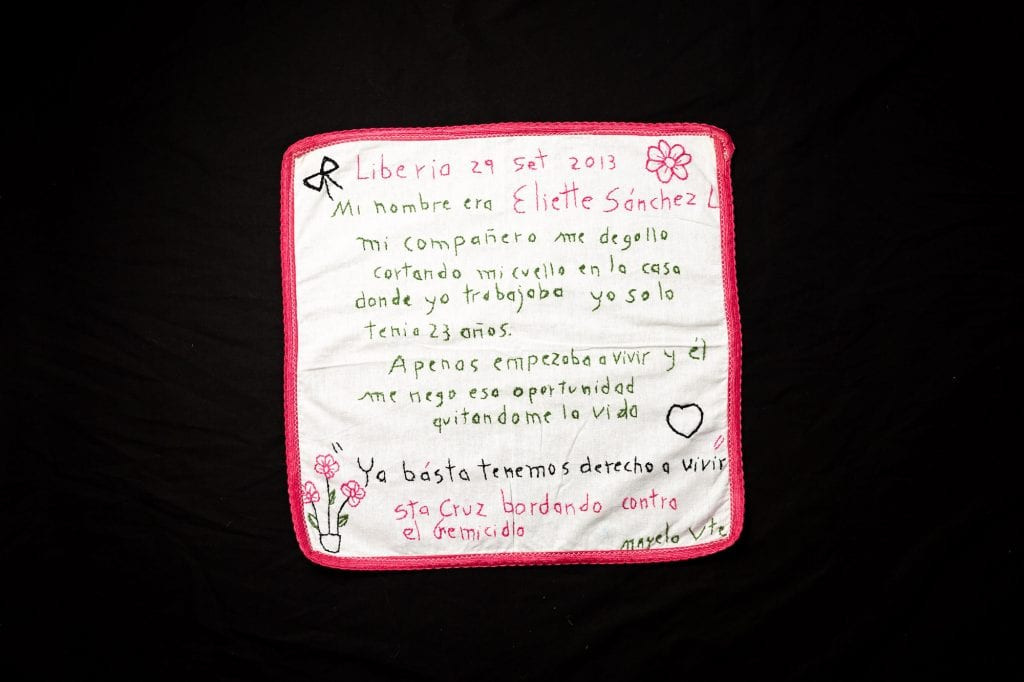 Liberia 29 set 2013
Mi nombre era Eliette Sánchez L
mi compañero me degollo
cortando mi cuello en la casa
donde yo trabajaba yo solo
tenia 23 años.
Apenas empezaba a vivir y él
me nego esa oportunidad
quitandome la vida
"Ya básta tenemos derecho a vivir"
sta Cruz bordando contra
el femicidio